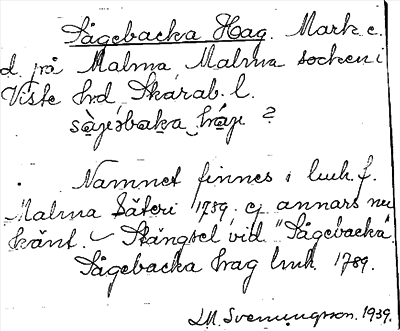 Sågebacka Hag. Mark c.
d. frå Malma Malma socken i
Viste hrd Skarab. l.
sàjəsbaka háje ?
Namnet finnes i luuk. f.
Malma Säteri 1789. ej annars nu
känt. – Stängsel vid "Sågebacka".
Sågebacka hag luuk. 1789.
LM. Svenungsson. 1939.